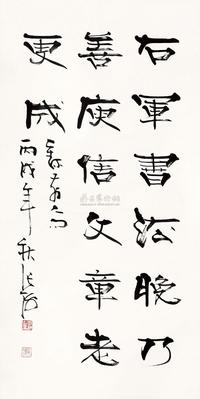 右軍書法晚乃
善庾信文章老
更成
丙戌年秋張海